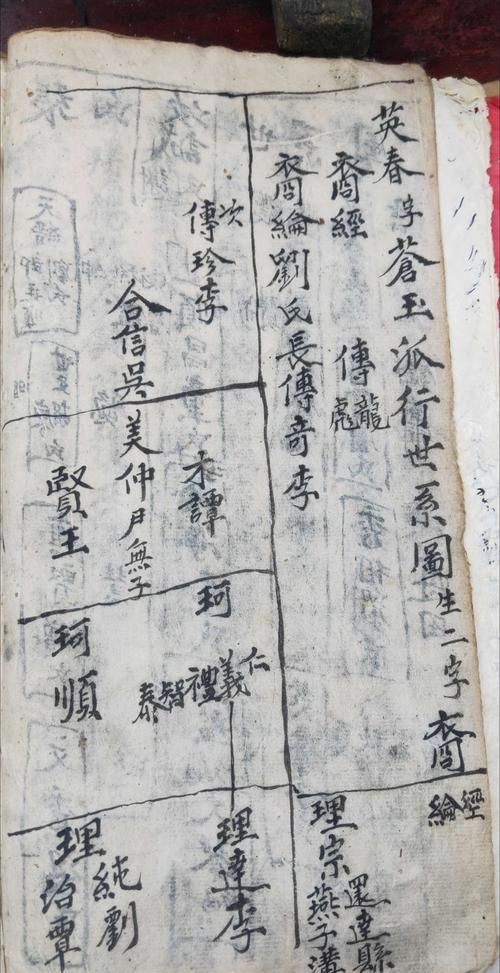 英春字蒼玉派行世系圖生二字裔經
綸
裔經 傳龍
彪
裔綸劉氏長傳奇李
次
傳珍李
合信吳
才譚
美仲尹無子
賢王
珂
珂順
仁
義
禮
智
泰
理宗還達縣
燕子溝
理達李
理純劉
理治覃